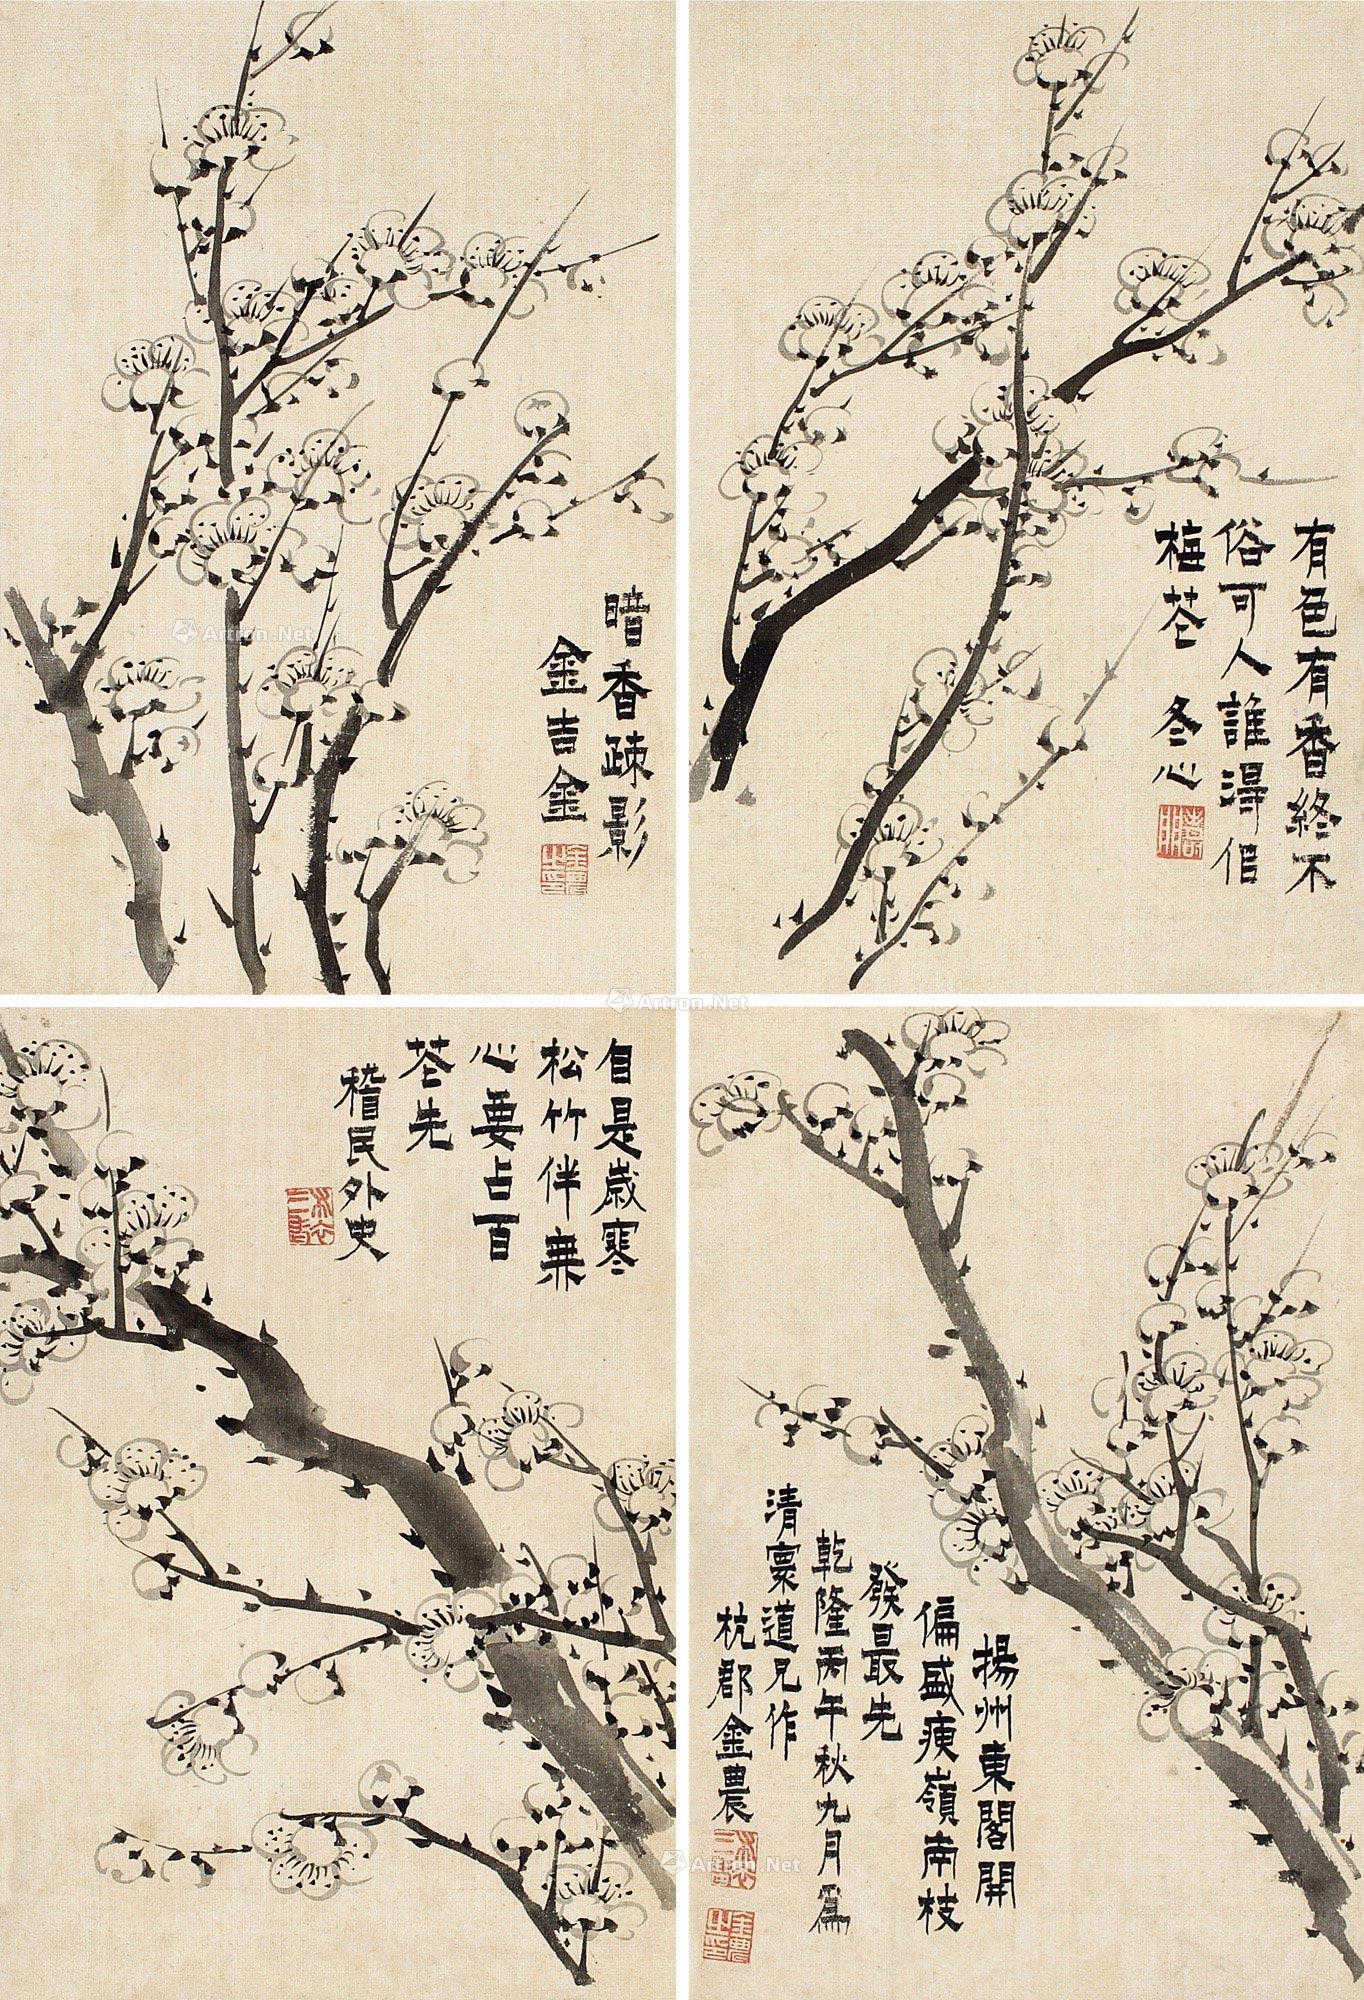 有色有香終不
俗可人誰淂侣
梅芲 冬心
暗香疎影
金吉金
金農之印
揚州東閣開
偏盛庾嶺南枝
發最先
乾隆丙午秋九月為
清寥道兄作
杭郡金農
金農之印
自是歲寒
松竹伴兼
心要占百
芲先
稽民外史
Artron.Net
Artron.Net
Artron.Net